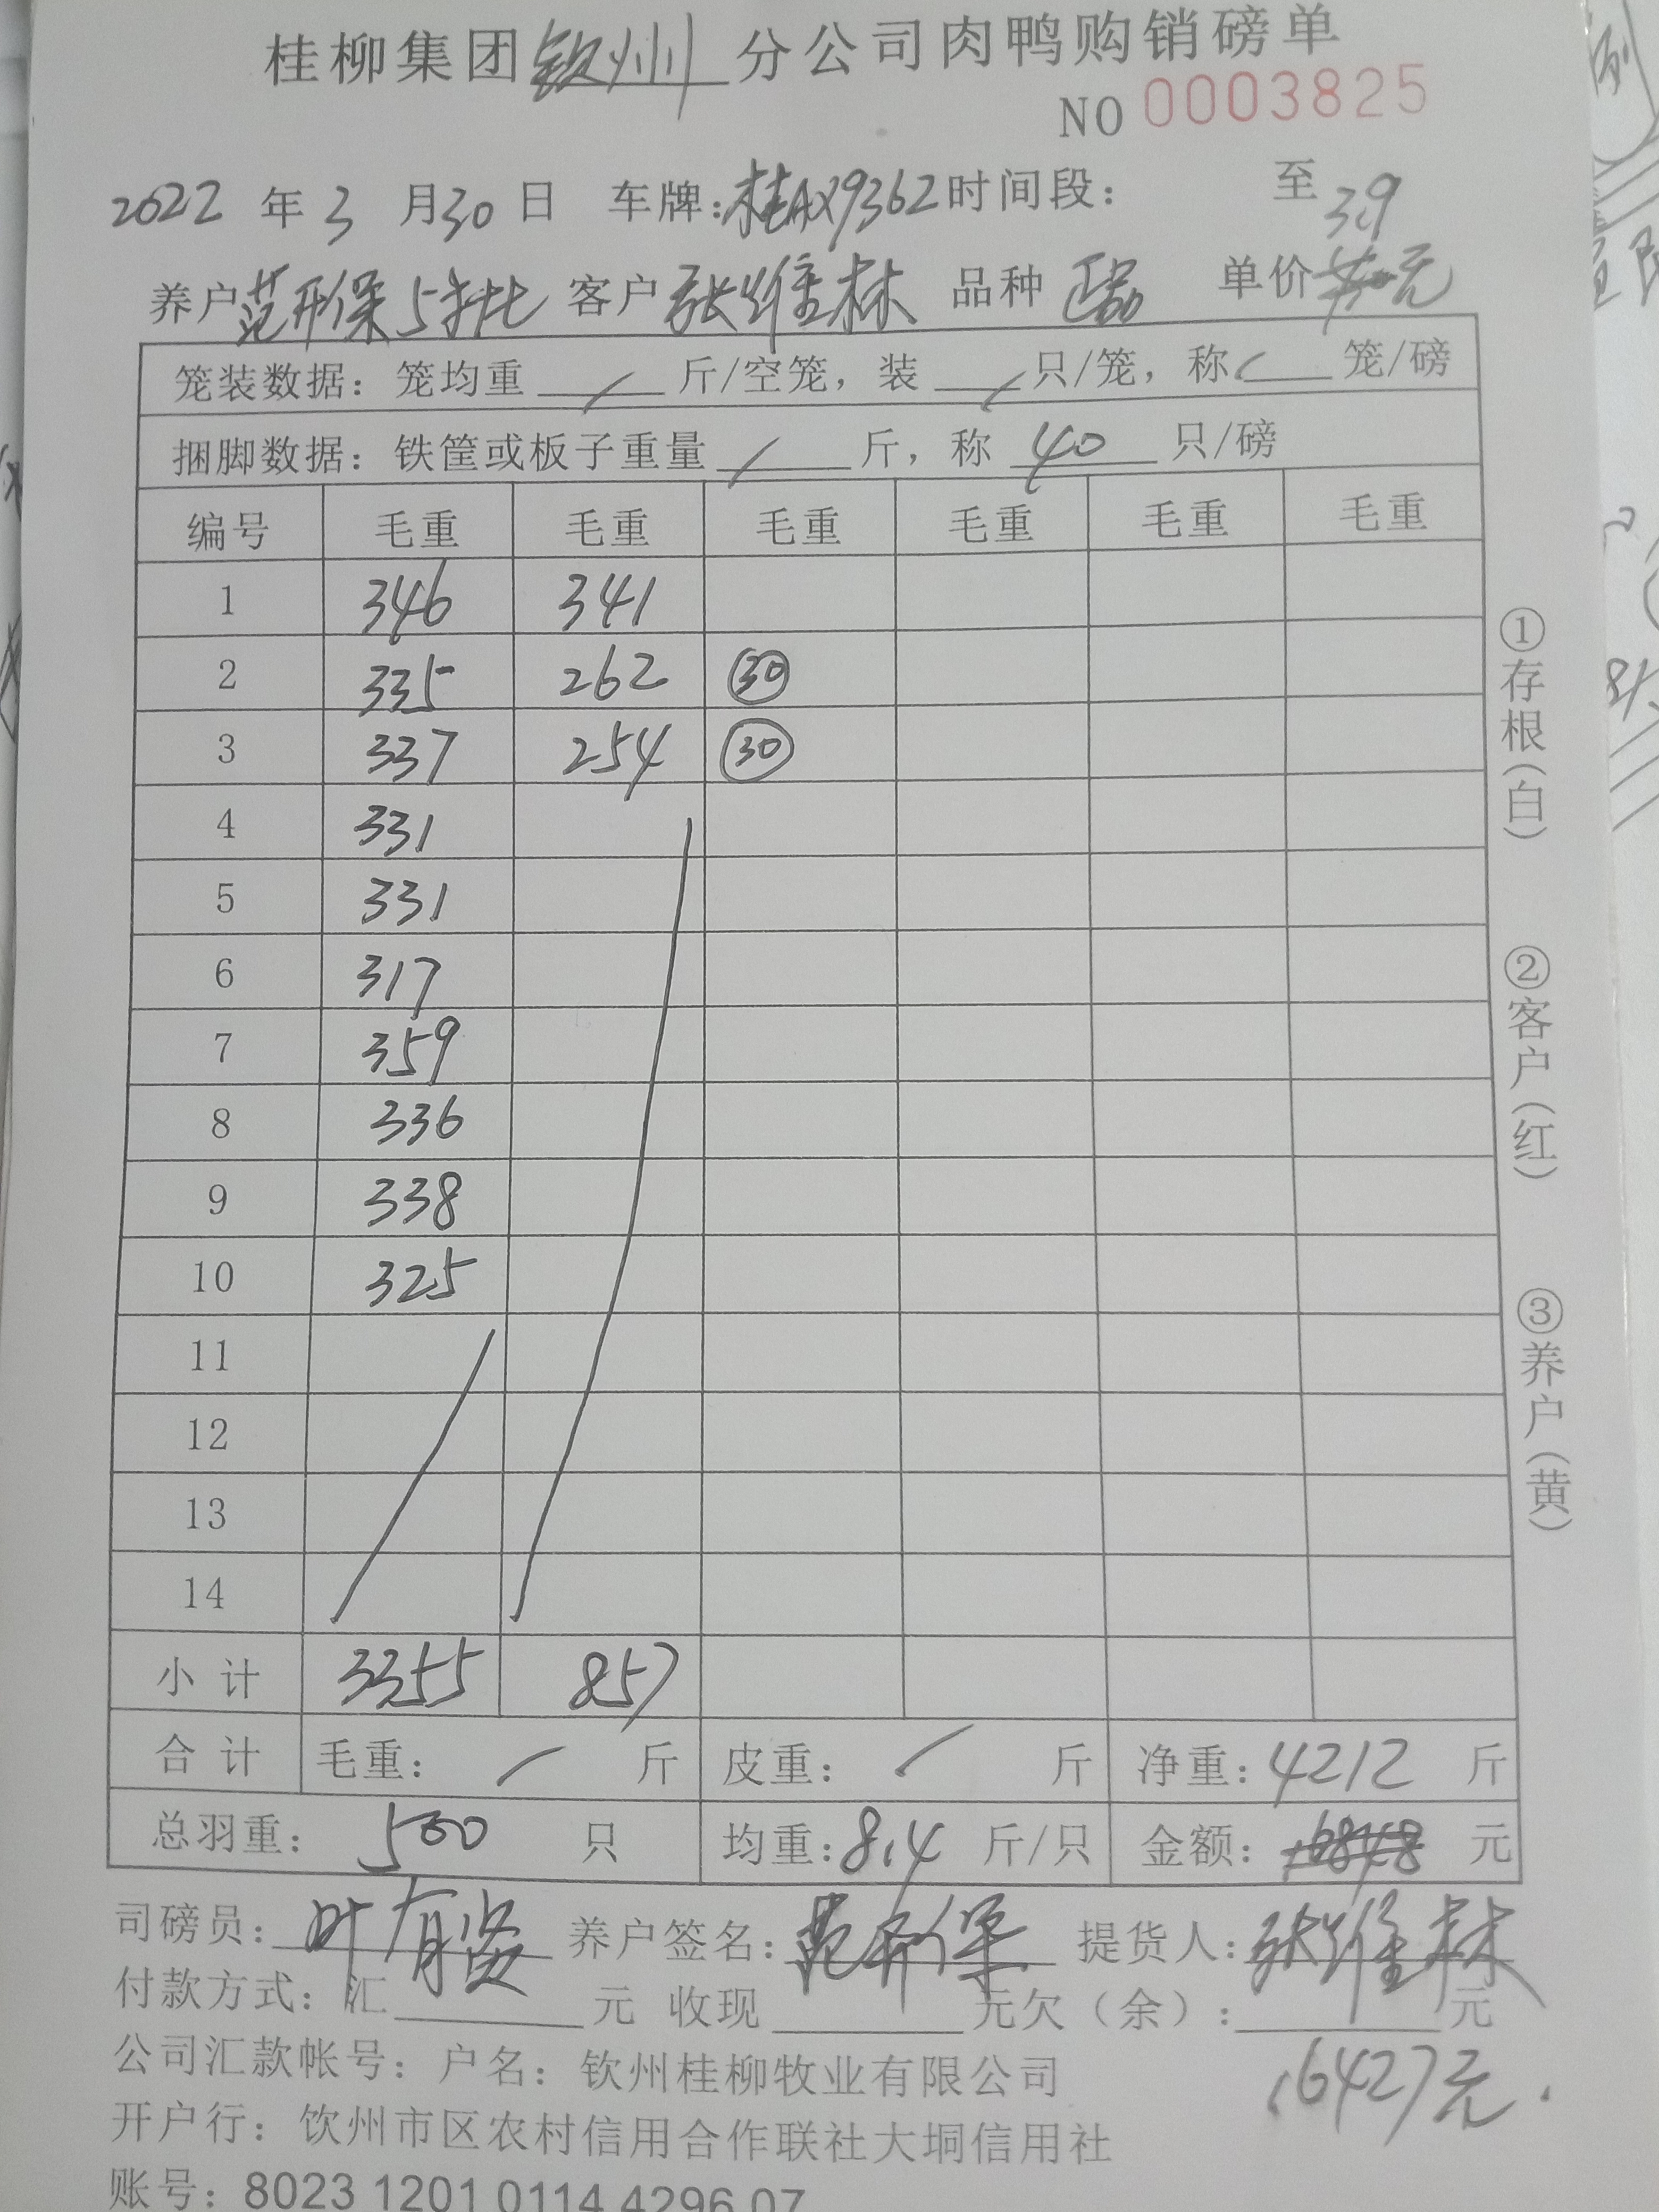 桂柳集团钦州分公司肉鸭购销磅单
NO 0003825
2022 年 3 月 30 日 车牌:桂AX9362 时间段: 至
3.9
养户 范 保 5批 客户 张维林 品种 正品 单价 元
笼装数据: 笼均重 / 斤/空笼, 装 / 只/笼, 称 / 笼/磅
捆脚数据: 铁筐或板子重量 / 斤, 称 40 只/磅
编号 毛重 毛重 毛重 毛重 毛重 毛重
1 346 341
2 335 262 ㉚
3 337 254 ㉚
4 331
5 331
6 317
7 359
8 336
9 338
10 325
11
12
13
14
小计 3355 857
合计 毛重: / 斤 皮重: / 斤 净重: 4212 斤
总羽重: 500 只 均重: 8.4 斤/只 金额: 16848 元
司磅员: 叶有 养户签名: 范 保 提货人: 张维林
付款方式: 汇 元 收现 元欠(余): 元
16427元.
公司汇款帐号: 户名: 钦州桂柳牧业有限公司
开户行: 饮州市区农村信用合作联社大垌信用社
账号: 8023 1201 0114 4296 07
①存根(白)
②客户(红)
③养户(黄)